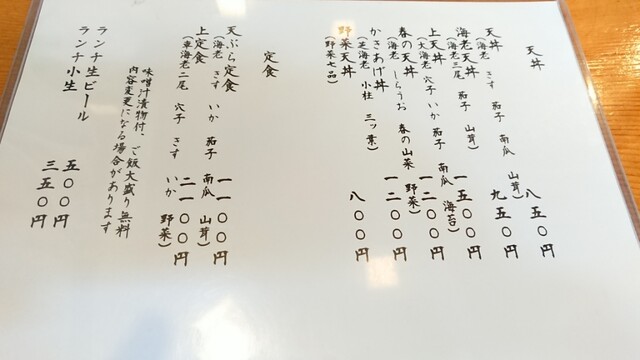 天丼
天丼 八五〇円
(海老 きす 茄子 南瓜 山茸)
海老天丼 九五〇円
(海老三尾 茄子 山茸)
上天丼 一五〇〇円
(大海老 穴子 いか 茄子 南瓜 海苔)
春の天丼 一二〇〇円
(海老 しらうお 春の山菜 野菜)
かきあげ丼 一二〇〇円
(芝海老 小柱 三ッ葉)
野菜天丼 八〇〇円
(野菜七品)
定食
天ぷら定食 一一〇〇円
(海老 きす いか 茄子 南瓜 山茸)
上定食 二一〇〇円
(車海老二尾 穴子 きす いか 野菜)
味噌汁漬物付、ご飯大盛り無料
内容変更になる場合があります
ランチ生ビール 五〇〇円
ランチ小生 三五〇円